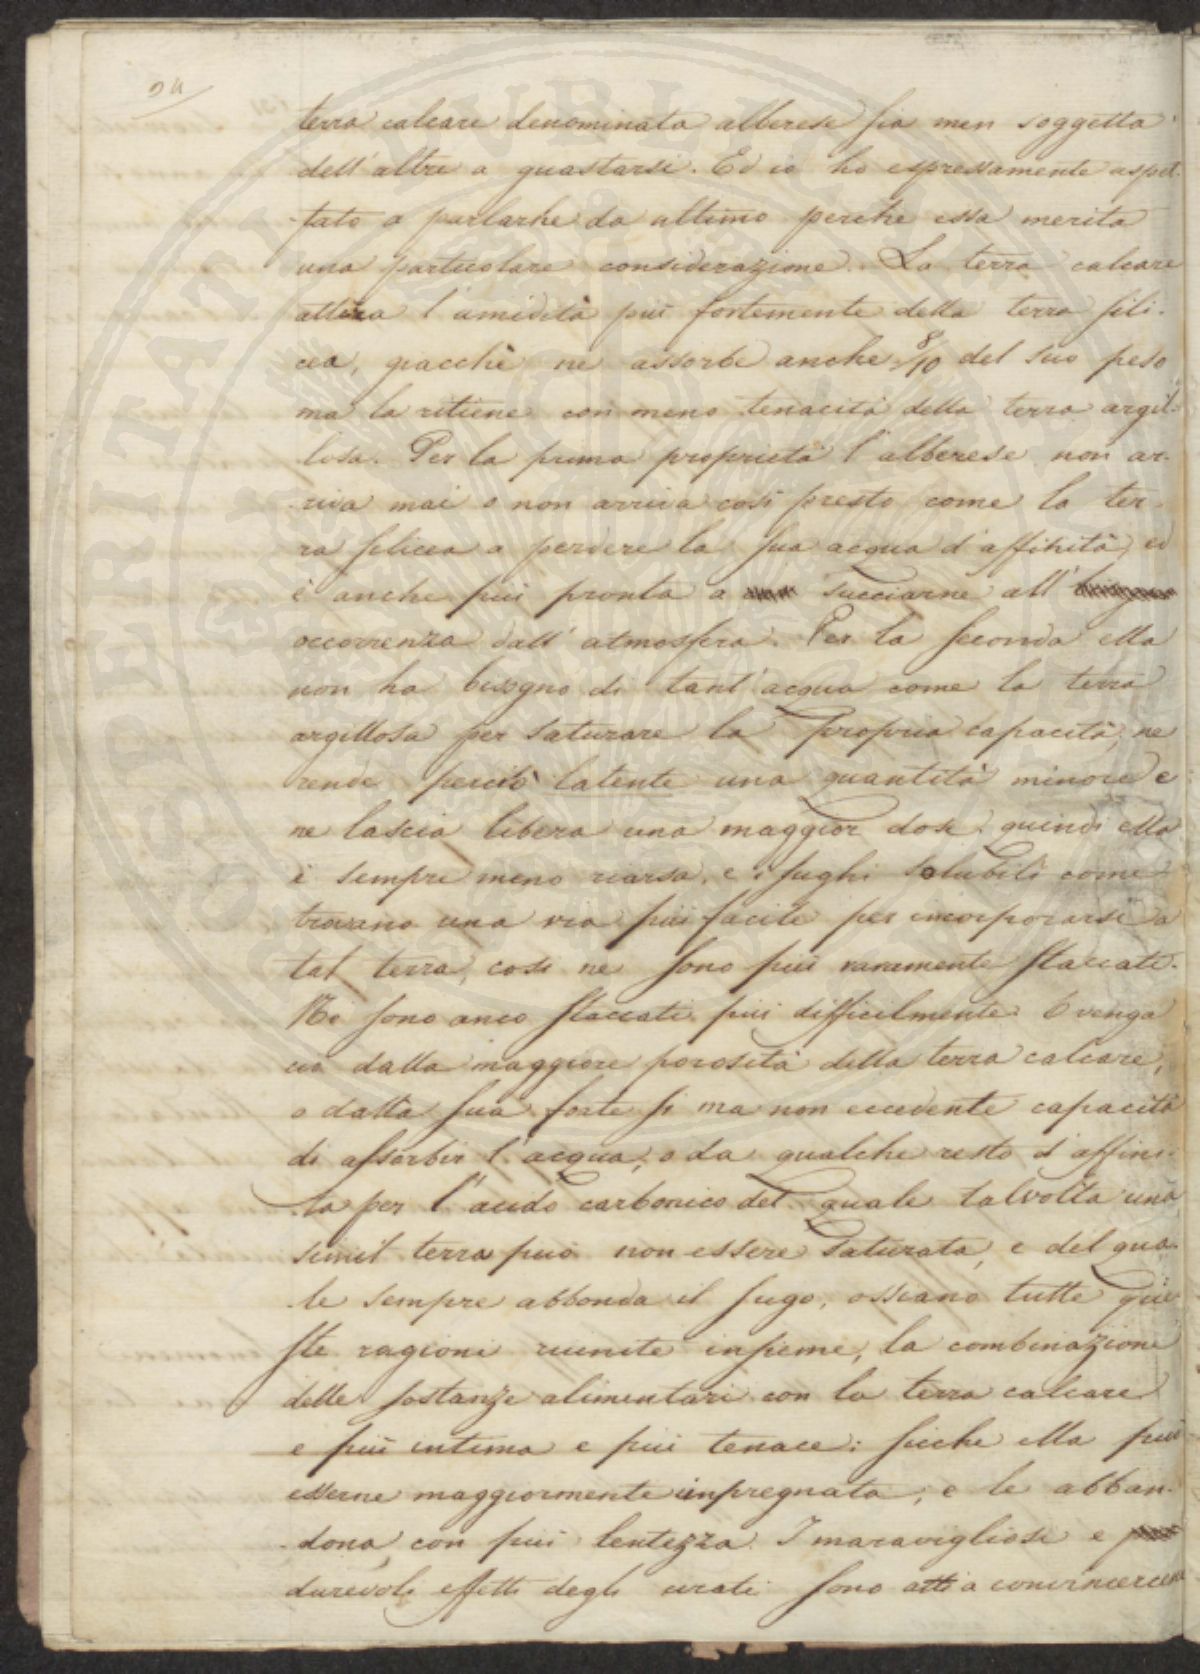 24
terra calcare denominata alberese sia men soggetta
dell'altre a guastarsi. Ed io ho espressamente aspet-
tato a parlarne da ultimo perche essa merita
una particolare considerazione. La terra calcare
attira l'umidità più fortemente della terra sili-
cea, giacchè ne assorbe anche 8/10 del suo peso
ma la ritiene con meno tenacità della terra argil-
losa. Per la prima proprietà l'alberese non ar-
riva mai o non arriva così presto come la ter-
ra silicea a perdere la sua acqua d'affinità, ed
è anche più pronta a succiarne all'
occorrenza dall'atmosfera. Per la seconda ella
non ha bisogno di tant'acqua come la terra
argillosa per saturare la propria capacità, ne
rende perciò latente una quantità minore e
ne lascia libera una maggior dose. quindi ella
è sempre meno riarsa, e i sughi solubili come
trovano una via più facile per incorporarsi a
tal terra, così ne sono più raramente staccati.
Ne sono anco staccati più difficilmente. O venga
ciò dalla maggiore porosità della terra calcare,
o dalla sua forte si ma non eccedente capacità
di assorbir l'acqua, o da qualche resto d'affini-
tà per l'acido carbonico del quale talvolta una
simil terra può non essere saturata, e del qua-
le sempre abbonda il sugo, ossiano tutte que-
ste ragioni riunite insieme, la combinazione
delle sostanze alimentari con la terra calcare
e più intima e più tenace: sicche ella può
esserne maggiormente impregnata, e le abban-
dona con più lentezza. I maravigliosi e
durevoli effetti degli urati sono atti a convincercene
SPERITATI PUBLICAE